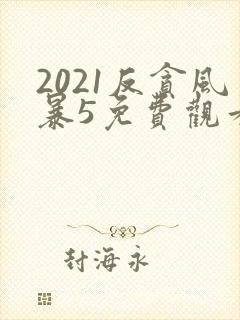 2021反貪風
暴5免費觀看
封海永